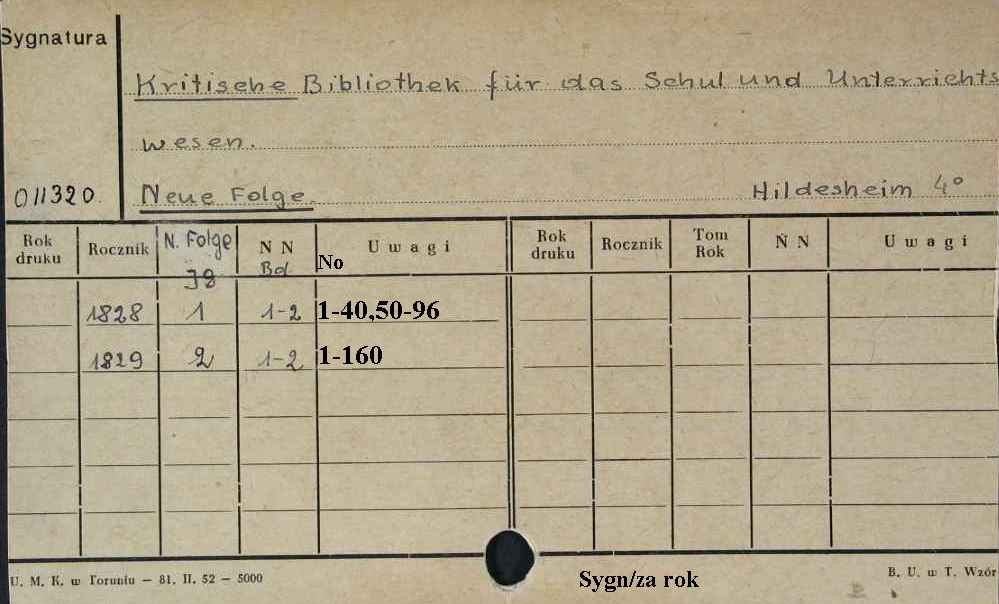 Sygnatura
Kritische Bibliothek für das Schul und Unterrichts
wesen.
011320 Neue Folge. Hildesheim 4°
Rok druku Rocznik N. Folge Jg N N Bd. No U w a g i Rok druku Rocznik Tom Rok N N U w a g i
1828 1 1-2 1-40,50-96
1829 2 1-2 1-160
U. M. K. w Toruniu — 81. II. 52 — 5000 Sygn/za rok B. U. w T. Wzór